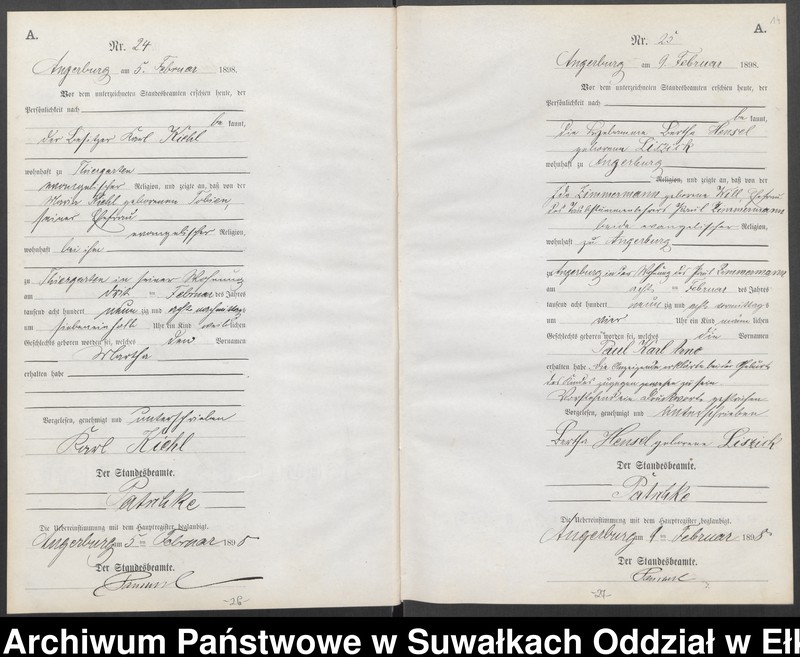 A.
Nr. 24
Angerburg am 5. Februar 1898.
Vor dem unterzeichneten Standesbeamten erschien heute, der
Persönlichkeit nach
be kannt,
der Besitzer Karl Kiehl
wohnhaft zu Thiergarten
evangelischer Religion, und zeigte an, daß von der
Maria Kiehl geborenen Tobien,
seiner Ehefrau
evangelischer Religion,
wohnhaft bei ihm
zu Thiergarten in seiner Wohnung
am Februar des Jahres
tausend acht hundert neun zig und acht nachmittags
um siebeneinhalb Uhr ein Kind weib lichen
Geschlechts geboren worden sei, welches den Vornamen
Martha
erhalten habe
Vorgelesen, genehmigt und unterschrieben
Karl Kiehl
Der Standesbeamte.
Patschke
Die Uebereinstimmung mit dem Hauptregister beglaubigt.
Angerburg am 5ten Februar 1898
Der Standesbeamte.
-26-
14
A.
Nr. 25
Angerburg am 9 Februar 1898.
Vor dem unterzeichneten Standesbeamten erschien heute, der
Persönlichkeit nach
be kannt,
die Hebamme Bertha Hensel
geborene Liszick
wohnhaft zu Angerburg
Religion, und zeigte an, daß von der
Ida Zimmermann geborene Ehefrau
des Zimmermann
beide evangelischer Religion,
wohnhaft zu Angerburg
zu Angerburg in der Wohnung des Zimmermann
am achten Februar des Jahres
tausend acht hundert neun zig und acht vormittags
um vier Uhr ein Kind männ lichen
Geschlechts geboren worden sei, welches die Vornamen
Paul Karl Arno
erhalten habe. Die Anzeigende erklärte bei der Geburt
des Kindes zugegen gewesen zu sein.
Vorstehend ein Druckwort gestrichen
Vorgelesen, genehmigt und unterschrieben
Bertha Hensel geborene Liszick
Der Standesbeamte.
Patschke
Die Uebereinstimmung mit dem Hauptregister beglaubigt.
Angerburg am 9ten Februar 1898
Der Standesbeamte.
-27-
Archiwum Państwowe w Suwałkach Oddział w Ełk